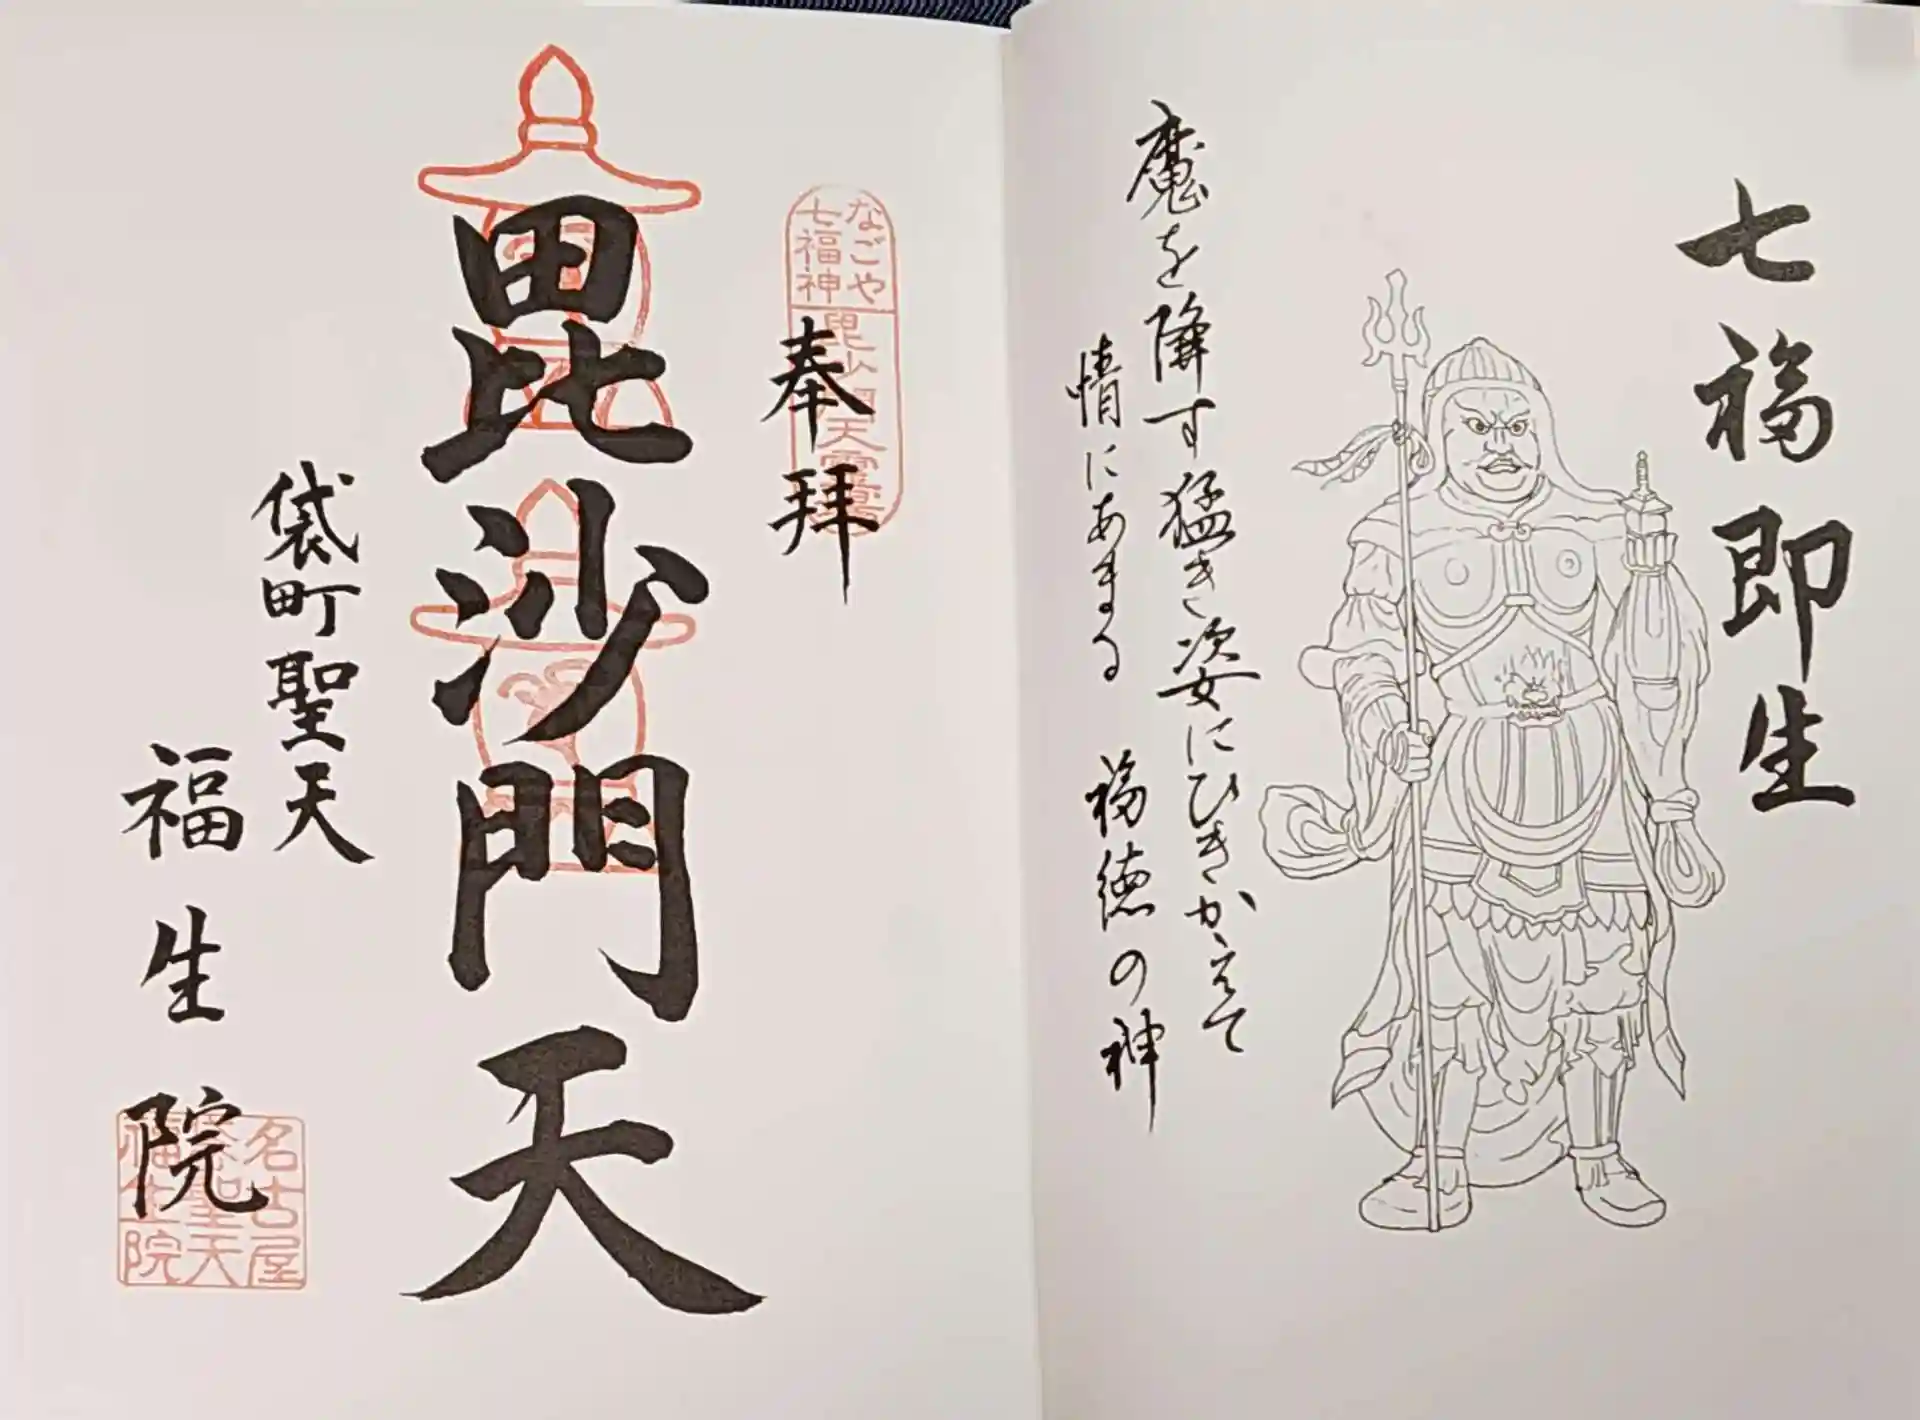 七福即生
魔を降す猛き姿にひきかえて
情にあまる 福徳の神
なごや
七福神
毘沙門天霊場
奉拝
毘沙門天
袋町聖天
福生院
名古屋
袋聖天
福生院